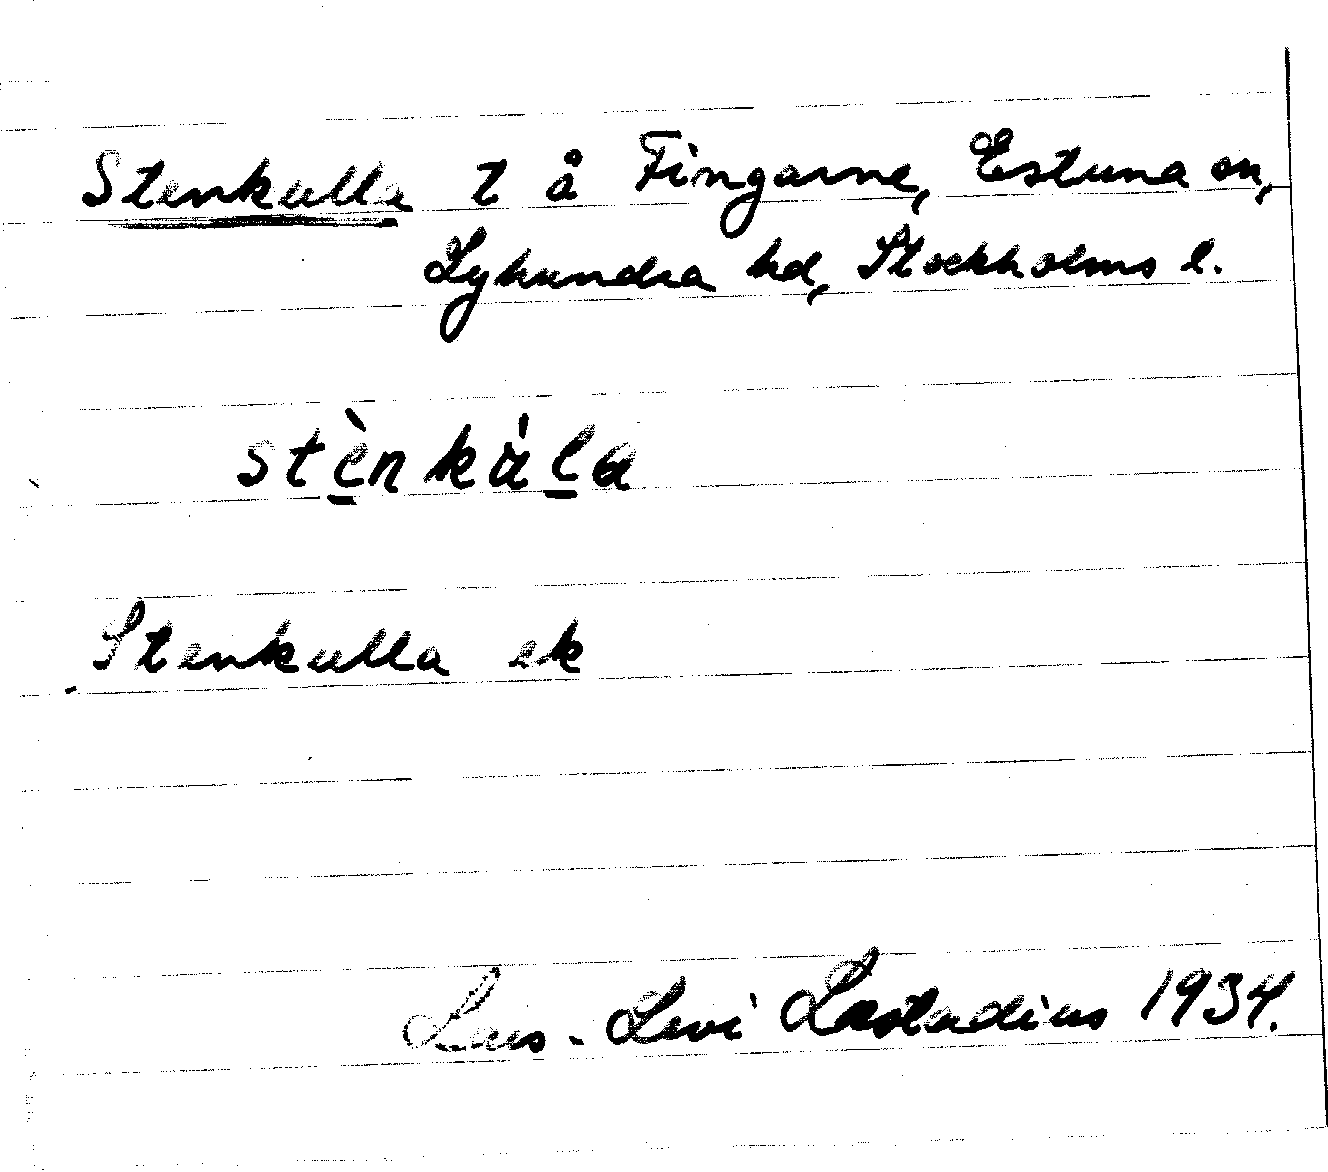 Stenkulla t å Fingarne, Estuna sn,
Lyhundra hd, Stockholms l.
stè̱nkàḻa
Stenkulla ek
Lars-Levi Læstadius 1934.